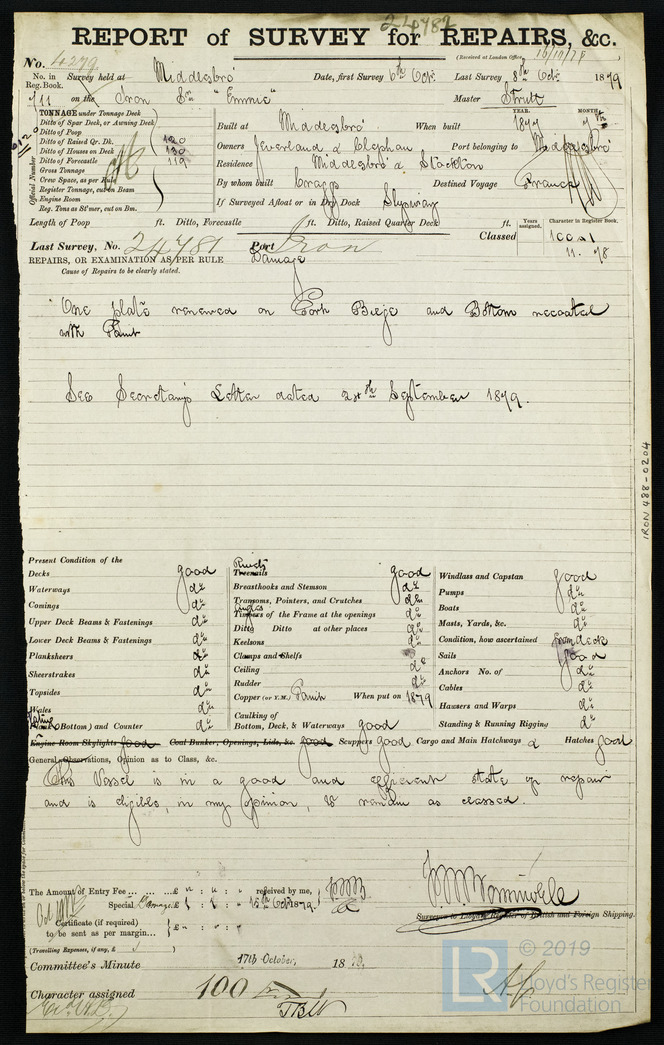 24781
REPORT of SURVEY for REPAIRS, &c.
(Received at London Office
No. 4279
No. in Reg. Book.
Survey held at Middlesbro' Date, first Survey 6th Oct. Last Survey 8th Oct. 1879
711 on the Iron Sr "Emmie" Master Strutt
TONNAGE under Tonnage Deck
Ditto of Spar Deck, or Awning Deck
Ditto of Poop
Ditto of Raised Qr. Dk.
Ditto of Houses on Deck
Ditto of Forecastle
Gross Tonnage
Crew Space, as per Rule
Register Tonnage, cut on Beam
Engine Room
Reg. Tons as St'mer, cut on Bm.
Official Number
120
130
119
YEAR. MONTH
Built at Middlesbro' When built 1877
Owners & Clephan Port belonging to Middlesbro'
Residence Middlesbro' & Stockton
By whom built Craggs Destined Voyage France
If Surveyed Afloat or in Dry Dock Slipway
Length of Poop ft. Ditto, Forecastle ft. Ditto, Raised Quarter Deck ft.
Years assigned. Character in Register Book.
Last Survey, No. 24781 Port Iron Classed 100A1
11. 78
REPAIRS, OR EXAMINATION AS PER RULE Damage
Cause of Repairs to be clearly stated.
One plate renewed on Port Bilge and Bottom recoated
with Paint
See Secretary's Letter dated September 1879.
IRON 488-0204
Present Condition of the
Decks good
Waterways do
Comings do
Upper Deck Beams & Fastenings do
Lower Deck Beams & Fastenings do
Planksheers do
Sheerstrakes do
Topsides do
Wales do
Plating Bottom) and Counter do
Rivets
Treenails good
Breasthooks and Stemson do
Transoms, Pointers, and Crutches do
Timbers of the Frame at the openings do
Ditto Ditto at other places do
Keelsons do
Clamps and Shelfs
Ceiling do
Rudder do
Copper (or Y.M.) Paint When put on 1879
Caulking of
Bottom, Deck, & Waterways good
Windlass and Capstan good
Pumps do
Boats do
Masts, Yards, &c. do
Condition, how ascertained from deck
Sails good
Anchors No. of do
Cables do
Hawsers and Warps do
Standing & Running Rigging do
Engine Room Skylights good Coal Bunker, Openings, Lids, &c. good Scuppers good Cargo and Main Hatchways & Hatches good
General Observations, Opinion as to Class, &c.
This Vessel is in a good and efficient state of repair
and is eligible, in my opinion, to remain as classed.
The Amount of Entry Fee ... ... ...£ " : " : " received by me,
Special Damage £ 1 : 1 : "
15th Oct 1879
Certificate (if required)
to be sent as per margin... £ " : " : "
(Travelling Expenses, if any, £ )
Surveyor to Lloyd's Register of British and Foreign Shipping.
Committee's Minute 17th October, 1879.
Character assigned 100
LR
© 2019
Lloyd's Register
Foundation